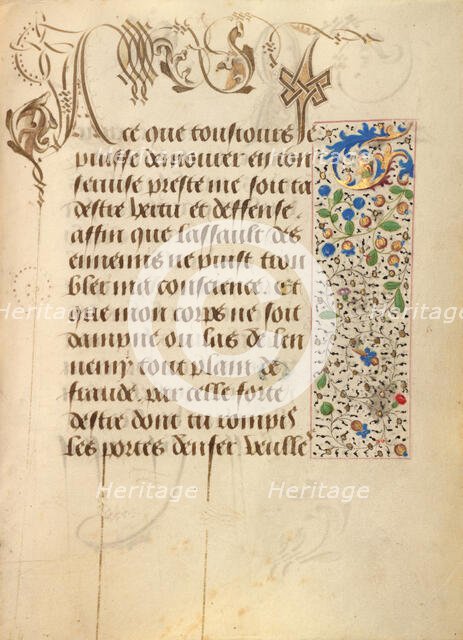 A ce que tousiours ie
puisse demourer en ton
seruise preste me soit ta
destre vertu et deffense.
affin que lassault des
ennemis ne puist trou
bler ma conscience. Et
Heritage Heritage Heritage
que mon corps ne soit
dampne ou las de len
nemy tout plain de
fraude. par celle forte
destre dont tu rompis
les portes denfer veulle
Heritage Heritage